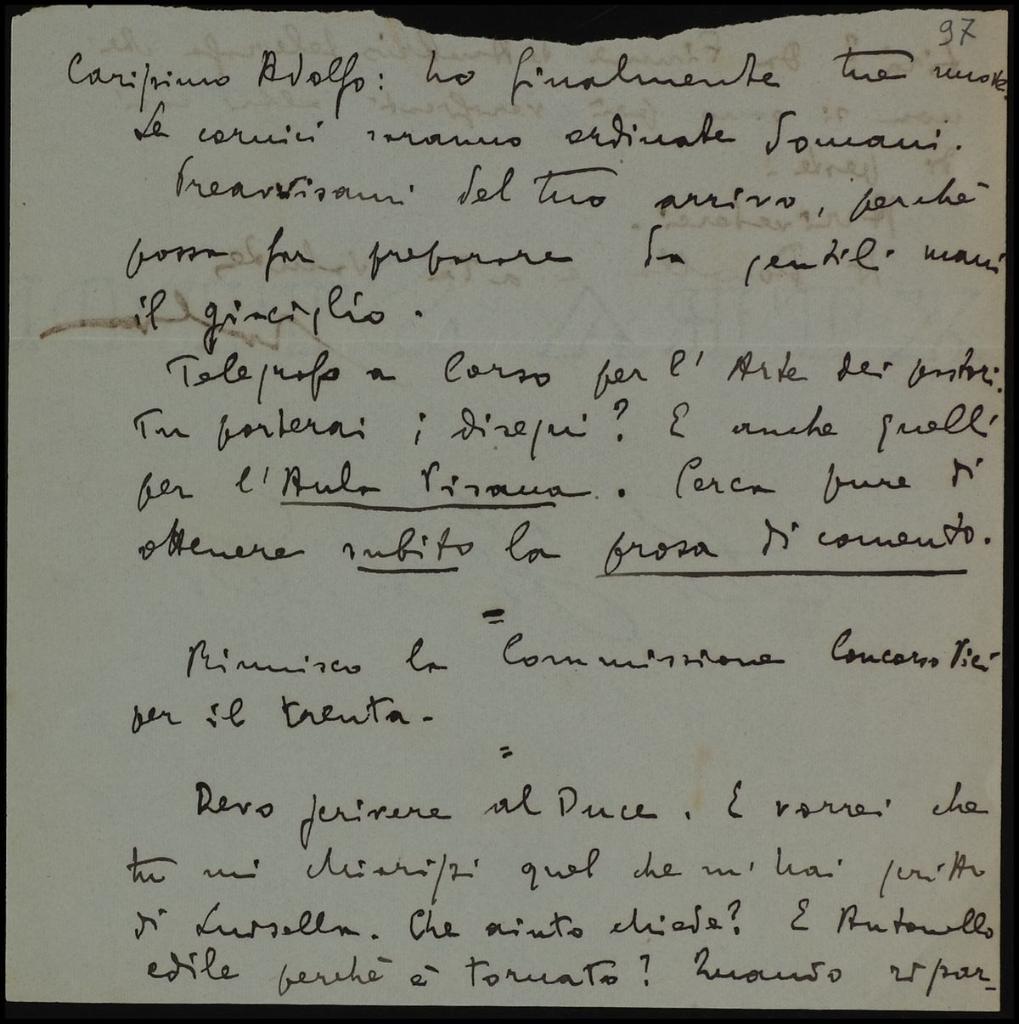 97
Carissimo Adolfo: ho finalmente tue nuove.
Le cornici saranno ordinate domani.
Preavvisami del tuo arrivo, perché
possa far preparare da gentili mani
il giaciglio.
Telegrafo a Corso per l'Arte dei pastori.
Tu porterai i disegni? E anche quelli
per l'Aula Pisana. Cerca pure di
ottenere subito la prosa di comento.
=
Riunisco la Commissione Concorso
per il trenta.
=
Devo scrivere al Duce. E vorrei che
tu mi chiarissi quel che m'hai scritto
di Luisella. Che aiuto chiede? E Antonello
edile perché è tornato? Quando ripar-